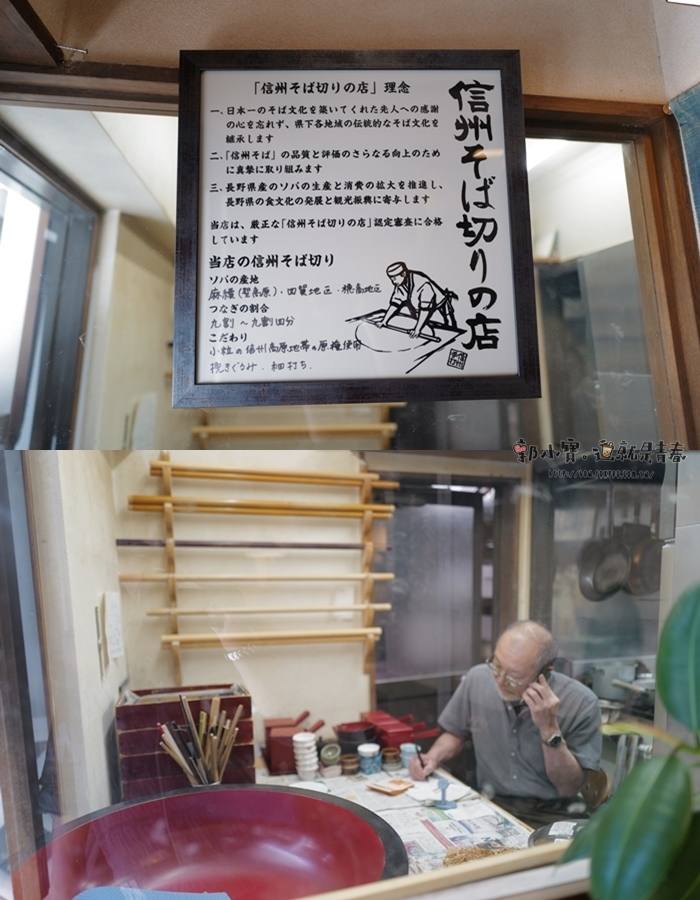 信州そば切りの店
「信州そば切りの店」理念
一、日本一のそば文化を築いてくれた先人への感謝
の心を忘れず、県下各地域の伝統的なそば文化を
継承します
二、「信州そば」の品質と評価のさらなる向上のため
に真摯に取り組みます
三、長野県産のソバの生産と消費の拡大を推進し、
長野県の食文化の発展と観光振興に寄与します
当店は、厳正な「信州そば切りの店」認定審査に合格
しています
当店の信州そば切り
ソバの産地
麻績(聖高原)・四賀地区・穂高地区
つなぎの割合
九割〜九割四分
こだわり
小粒の信州高原地帯の原種使用
挽きぐるみ・細打ち.
郭小寶。這就是青春